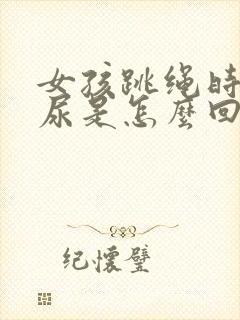 女孩跳绳时
尿是怎麼回
纪懷璧